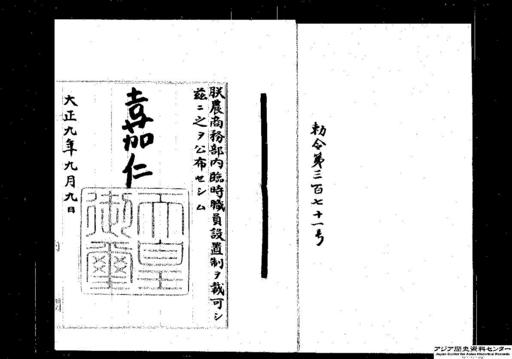 勅令第三百七十一号
朕農商務部内臨時職員設置制ヲ裁可シ
茲ニ之ヲ公布セシム
嘉仁
天皇
御璽
大正九年九月九日
アジア歴史資料センター
Japan Center for Asian Historical Records